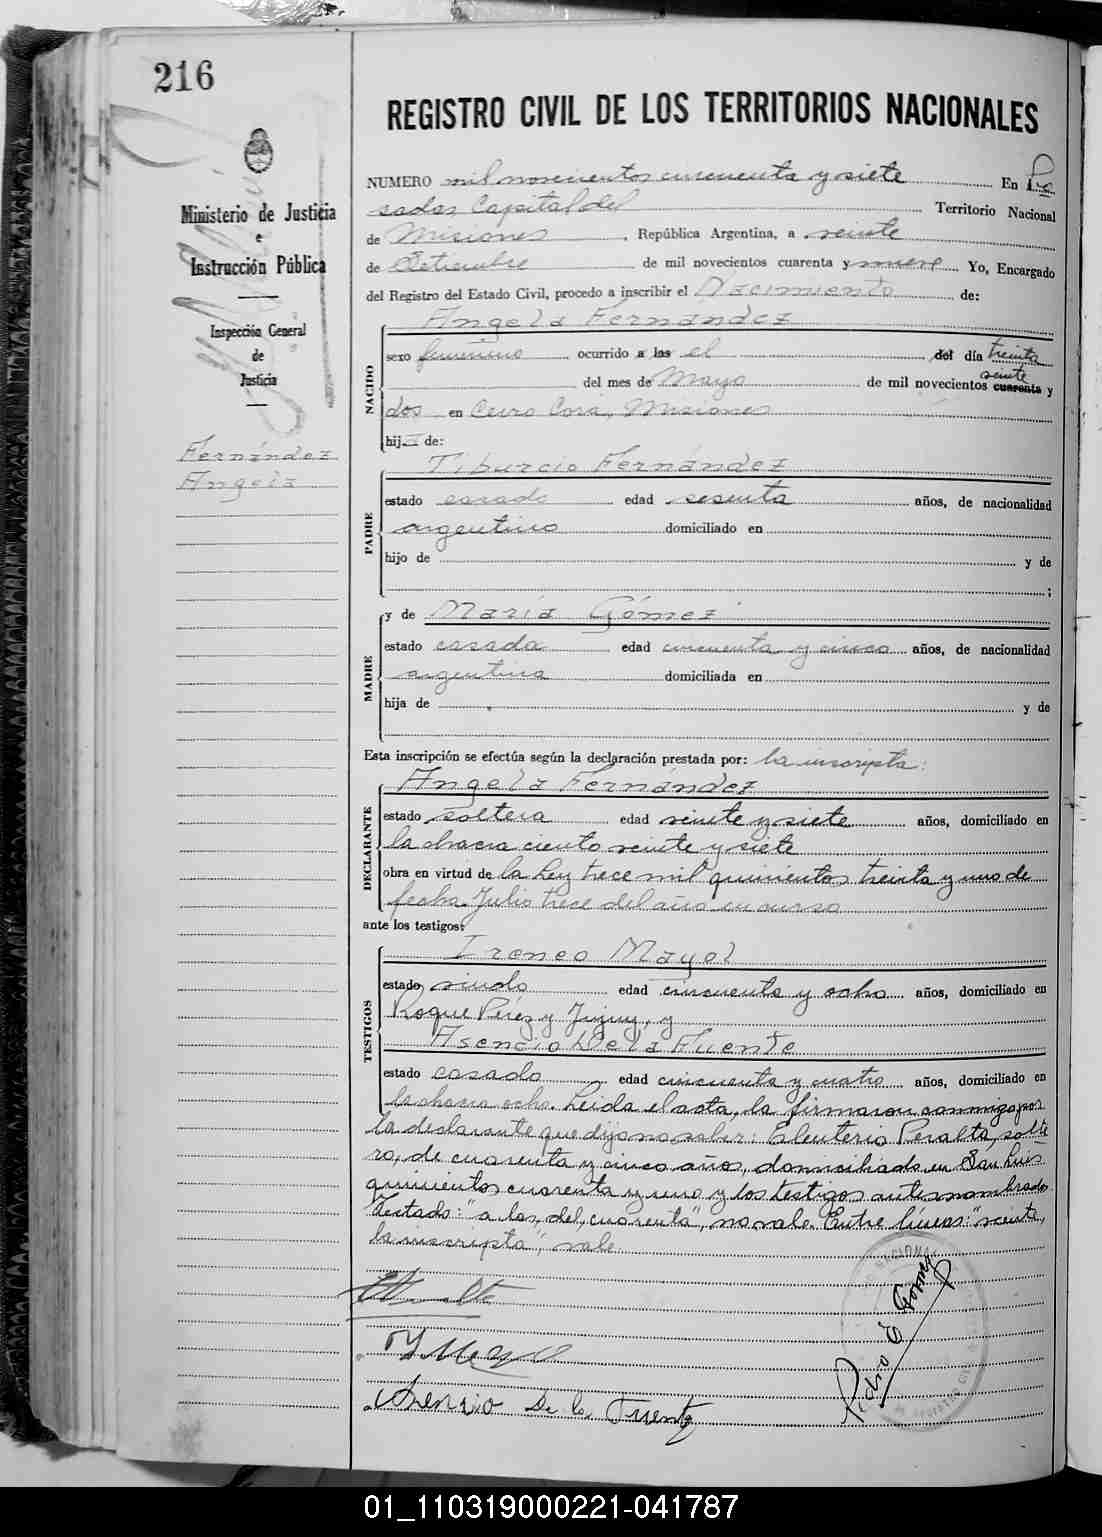 216
Ministerio de Justicia
e
Instrucción Pública
Inspección General
de
Justicia
Fernández
Angela
REGISTRO CIVIL DE LOS TERRITORIOS NACIONALES
NUMERO mil novecientos cincuenta y siete En Po
sadas Capital del Territorio Nacional
de Misiones, República Argentina, a veinte
de Setiembre de mil novecientos cuarenta y nueve Yo, Encargado
del Registro del Estado Civil, procedo a inscribir el Nacimiento de:
NACIDO
Angela Fernández
sexo femenino ocurrido a las el del día treinta
del mes de Mayo de mil novecientos cuarenta veinte y
dos en Cerro Corá, Misiones
hija de:
PADRE
Tiburcio Fernández
estado casado edad sesenta años, de nacionalidad
argentino domiciliado en
hijo de y de
;
MADRE
y de María Gómez
estado casada edad cincuenta y cinco años, de nacionalidad
argentina domiciliada en
hija de y de
Esta inscripción se efectúa según la declaración prestada por: la inscripta:
DECLARANTE
Angela Fernández
estado soltera edad veinte y siete años, domiciliado en
la chacra ciento veinte y siete
obra en virtud de la Ley trece mil quinientos treinta y uno de
fecha Julio trece del año en curso
ante los testigos:
TESTIGOS
Ireneo Mayol
estado viudo edad cincuenta y ocho años, domiciliado en
Roque Pérez y Jujuy, y
Asencio De la Fuente
estado casado edad cincuenta y cuatro años, domiciliado en
la chacra ocho. Leida el acta, la firmaron conmigo por
la declarante que dijo no saber: Eleuterio Peralta, solte
ro, de cuarenta y cinco años, domiciliado en San Luis
quinientos cuarenta y uno y los testigos antes nombrados
Testado: "a las, del, cuarenta", no vale. Entre líneas: "veinte,
la inscripta", vale.
Asencio De la Fuente
Pedro E Gomez
01_110319000221-041787